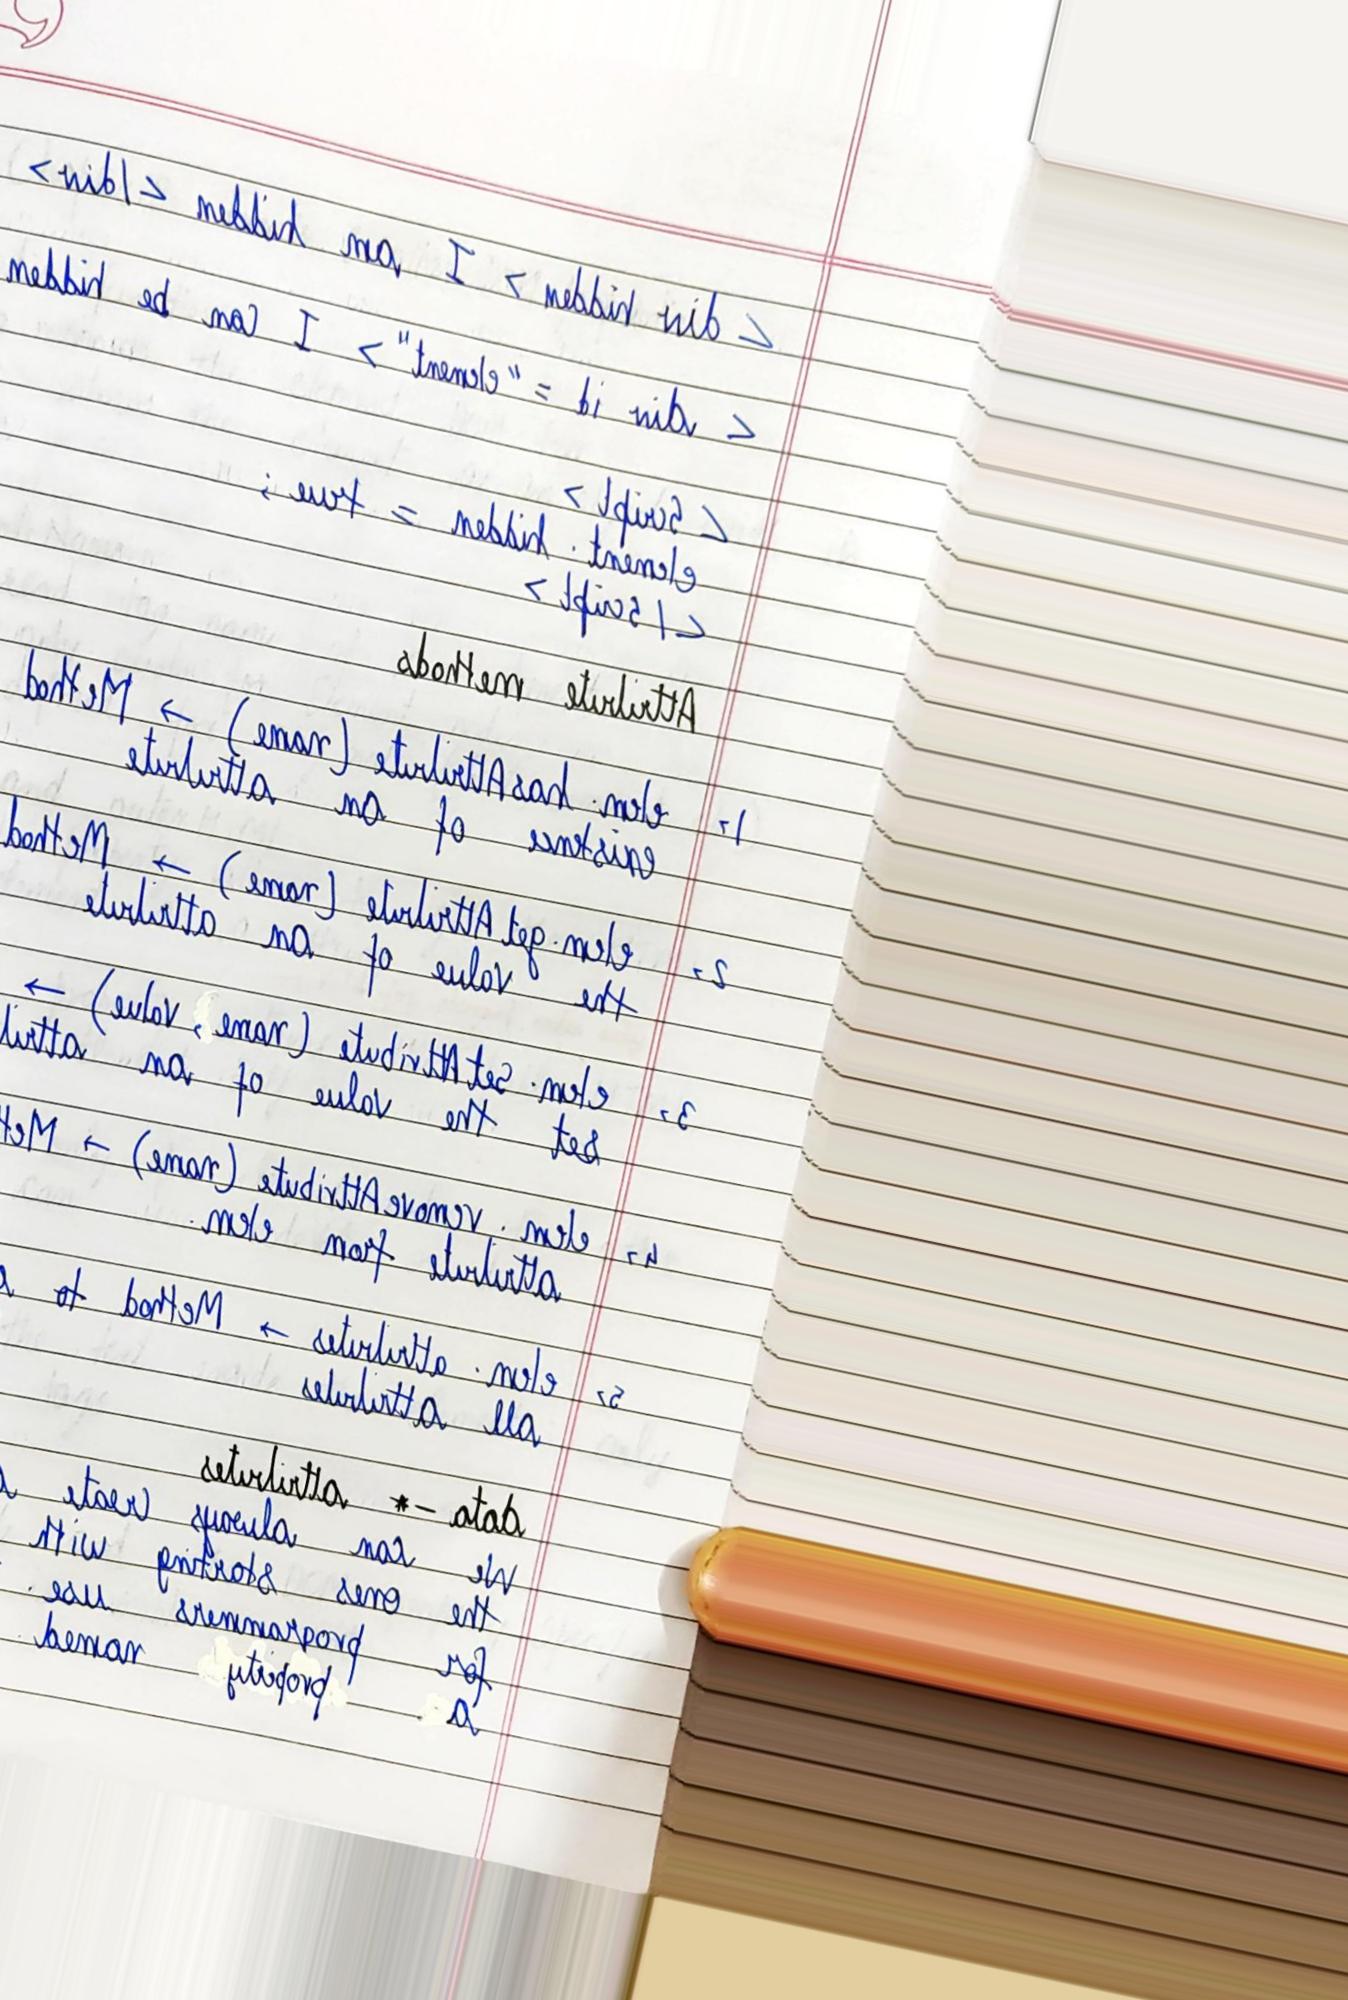 < div hidden > I am hidden < / div >
< div id = "element" > I can be hidden
< Script >
element . hidden = true ;
< / Script >
Attribute methods
1, elem. has Attribute (name) → Method
existence of an attribute
2, elem. get Attribute (name) → Method
the value of an attribute
3, elem. Set Attribute (name, value) →
set the value of an
4, elem . remove Attribute (name) →
attribute from elem.
5, elem . attributes → Method to
all attributes
data -* attributes
We can always create
the ones starting with
for programmers use.
a property named